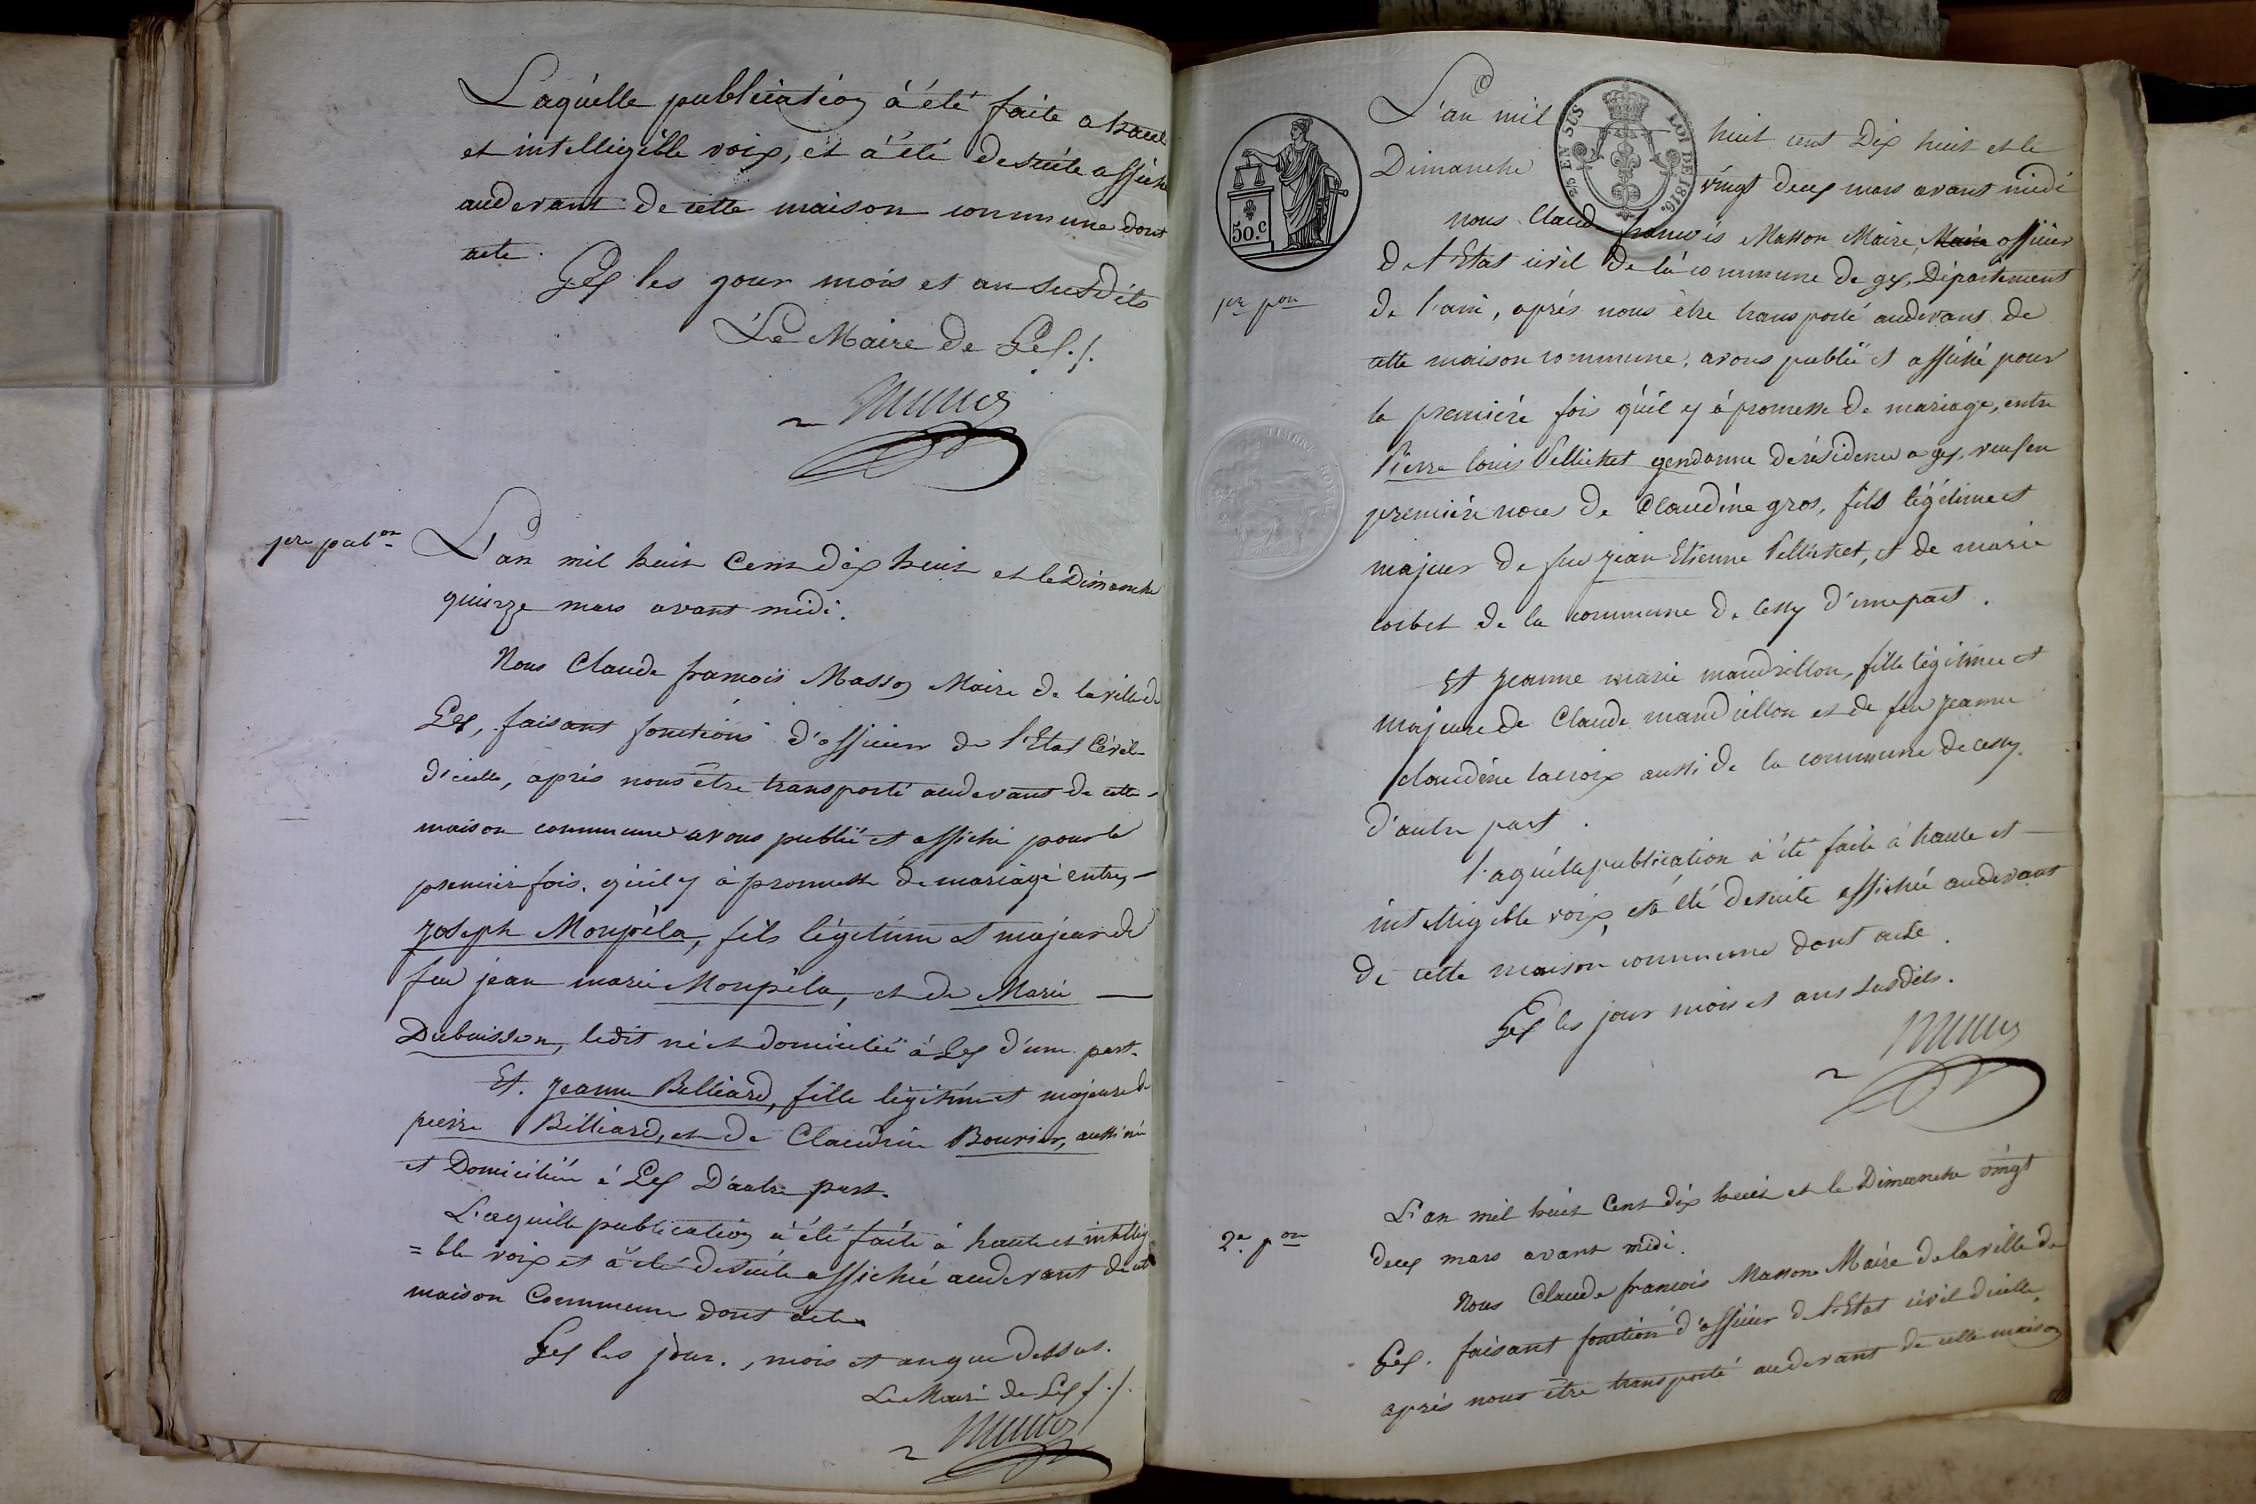 Laquelle publication à été faite a haute
et intelligible voix, et à été desuite affiché
audevant de cette maison commune dont
acte.
Gex les jour mois et an susdits
Le Maire de Gex ./.
1ere pubon
L'an mil huit Cent dix huit et le Dimanche
quinze mars avant midi.
Nous Claude françois Masson Maire de la ville de
Gex, faisant fonctions d'officier de l'Etat Civil
d'icelle, après nous être transporté audevant de cette
maison commune avons publié et affiché pour la
premiere fois, qu'il y à promesse de mariage entre,
Joseph Monpéla, fils légitime et majeur de
feu jean marie Monpéla, et de Marie
Dubuisson, ledit né et domicilié à Gex d'une part.
Et. Jeanne Billiard, fille légitime et majeure de
pierre Billiard, et de Claudine Bouvier, aussi née
et Domiciliée à Gex D'autre part.
Laquelle publication à été faite à haute et intelligi
=ble voix et à été desuite affichée audevant de cette
maison Commune dont acte
Gex les jour, mois et an que dessus.
Le Maire de Gex ./.
EN SUS
LOI DE 1816.
50.c
TIMBRE ROYAL
L'an mil huit cent Dix huit et le
Dimanche vingt deux mars avant midi
nous Claude françois Masson Maire, Maire officier
de l'Etat civil de la commune de gex, Département
1re pon
de l'ain, après nous être transporté audevant de
cette maison commune, avons publié et affiché pour
la première fois qu'il y à promesse de mariage, entre
Pierre louis Pellichet gendarme de résidence a gex, veuf en
première noces de Claudine gros, fils légitime et
majeur de feu jean Etienne Pellichet, et de marie
corbet de la commune de Cessy d'une part.
Et Jeanne marie mandrillon, fille légitime et
majeure de Claude mandrillon et de feu jeanne
claudine lacroix aussi de la commune de cessy.
d'autre part.
laquelle publication à été faite à haute et
intelligible voix, et à été desuite affichée audevant
de cette maison commune dont acte.
Gex les jour mois et ans susdits.
2e pon
L'an mil huit Cent dix huit et le Dimanche vingt
deux mars avant midi.
Nous Claude françois Masson Maire de la ville de
Gex. faisant fonction d'officier de l'Etat civil d'icelle,
après nous être transporté audevant de cette maison